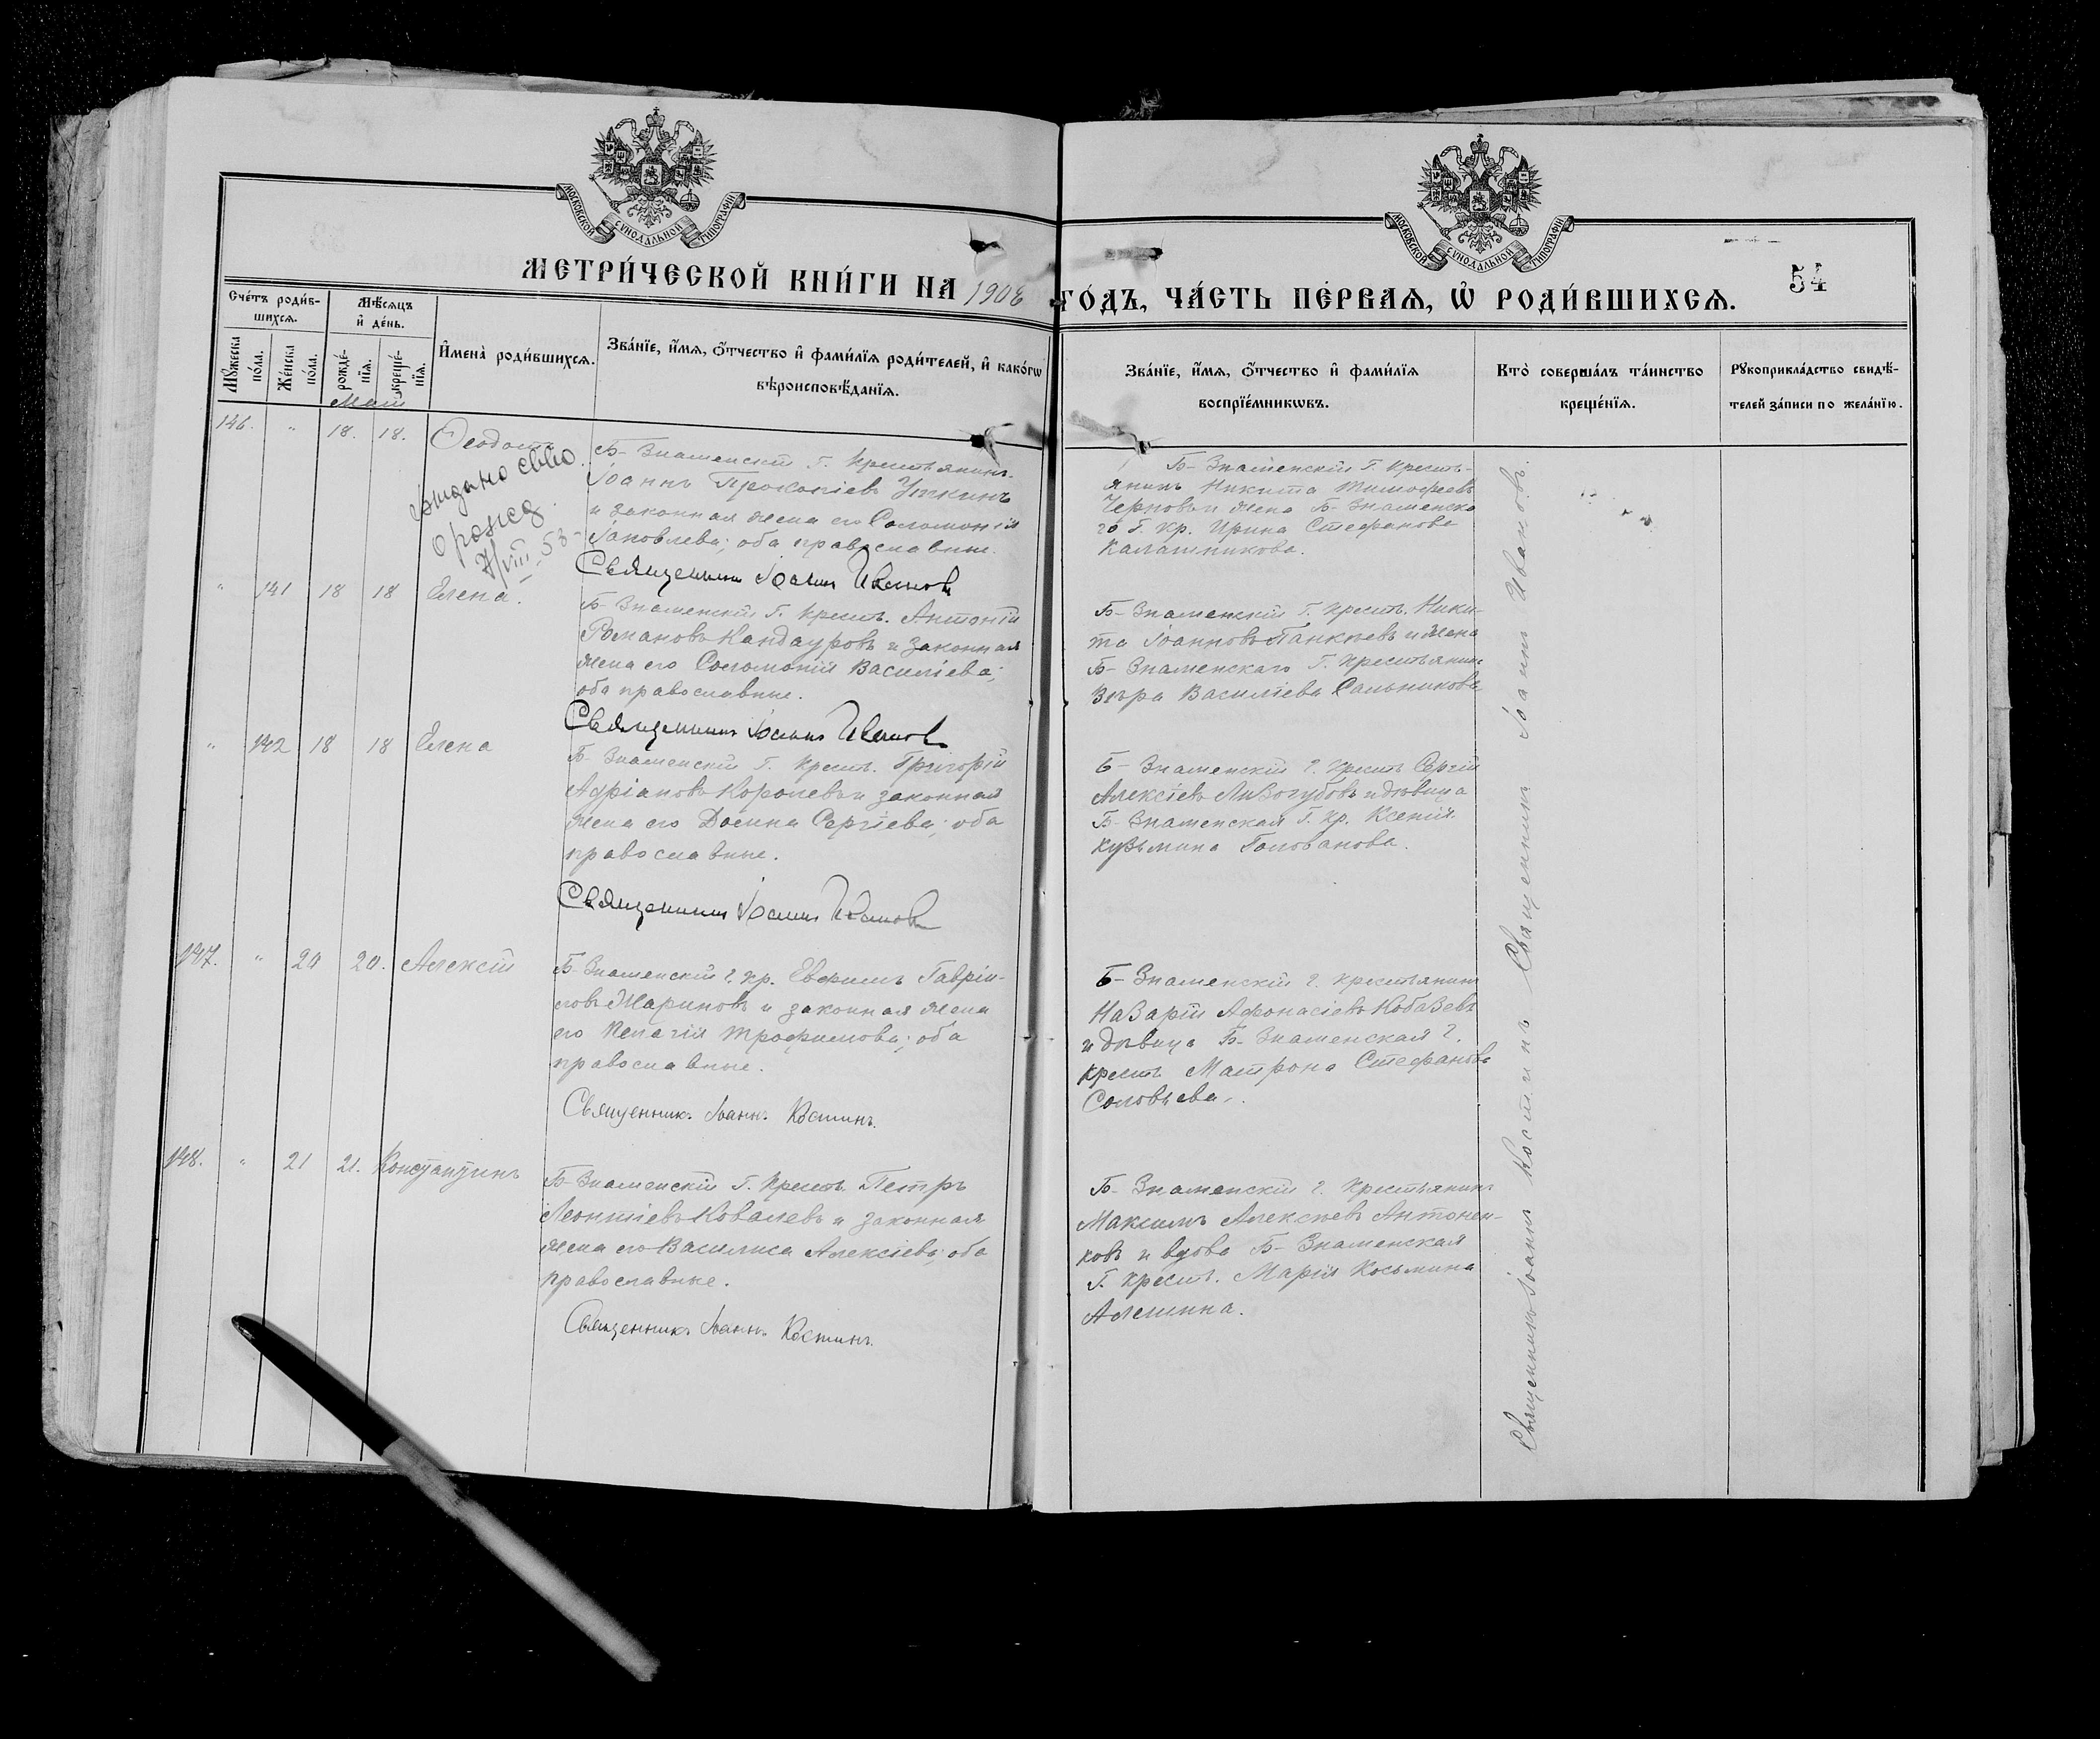 МОСКОВСКОЙ СѴНОДАЛЬНОЙ ТИПОГРАФІИ
МОСКОВСКОЙ СѴНОДАЛЬНОЙ ТИПОГРАФІИ
54
МЕТРИ́ЧЕСКОЙ КНИ́ГИ НА 1908 ГО́ДЪ, ЧА́СТЬ ПЕ́РВАѦ, Ѽ РОДИ́ВШИХСѦ.
Сче́тъ роди́в-
шихсѧ.
Мꙋжеска по́ла.
Же́нска по́ла.
Мѣ́сѧцъ и҆ де́нь.
рожде́-нїѧ.
креще́-нїѧ.
И҆мена̀ роди́вшихсѧ.
Зва́нїе, и҆́мѧ, ѻ҆́тчество и҆ фами́лїѧ роди́телей, и҆ како́гѡ
вѣроисповѣ́данїѧ.
Зва́нїе, и҆́мѧ, ѻ҆́тчество и҆ фами́лїѧ
воспрїе́мникѡвъ.
Кто̀ соверша́лъ та́инство
креще́нїѧ.
Рꙋкоприкла́дство свидѣ́-
телей за́писи по жела́нїю.
Май
146. " 18. 18.
выдано св-во
о рожд.
VIII 53
Б-Знаменскій Г. Крестьянинъ
Іоаннъ Прокопіевъ Уткинъ
и законная жена его Соломонія
Іаковлева; оба православные.
Священникъ Іоаннъ Ивановъ
Б-Знаменскій Г. кресть-
янинъ Никита Тимофеевъ
Черновъ и жена Б-Знаменска
го Г. кр. Ирина Стефанова
Калашникова.
" 141 18 18 Елена.
Б-Знаменскій Г. крест. Антоній
Романовъ Кандауровъ и законная
жена его Соломонія Василіева;
оба православные.
Священникъ Іоаннъ Ивановъ
Б-Знаменскій Г. крест. Ники-
та Іоанновъ Панкѣевъ и жена
Б-Знаменскаго Г. крестьянина
Вѣра Василіева Сальникова
" 142 18 18 Елена
Б-Знаменскій Г. крест. Григорій
Адріановъ Королевъ и законная
жена его Домна Сергіева; оба
православные.
Священникъ Іоаннъ Ивановъ
Б-Знаменскій Г. крест. Сергій
Алексіевъ Лизогубовъ и дѣвица
Б-Знаменская Г. кр. Ксенія
Кузьмина Голованова.
147. " 20 20. Алексій
Б-Знаменскій Г. кр. Евфимъ Гаврі-
ловъ Жариновъ и законная жена
его Пелагія Трофимова; оба
православные.
Священникъ Іоаннъ Костинъ.
Б-Знаменскій Г. крестьянинъ
Назарій Афонасіевъ Кобазевъ
и дѣвица Б-Знаменская Г.
крест. Матрона Стефанова
Соловьева.
148. " 21 21. Константинъ
Б-Знаменскій Г. крест. Петръ
Леонтіевъ Ковалевъ и законная
жена его Василиса Алексіева; оба
православные.
Священникъ Іоаннъ Костинъ.
Б-Знаменскій Г. крестьянинъ
Максимъ Алексѣевъ Антонен-
ковъ и вдова Б-Знаменская
Г. крест. Марія Косьмина
Алешина.
Священникъ Іоаннъ Костинъ Священникъ Іоаннъ Ивановъ.